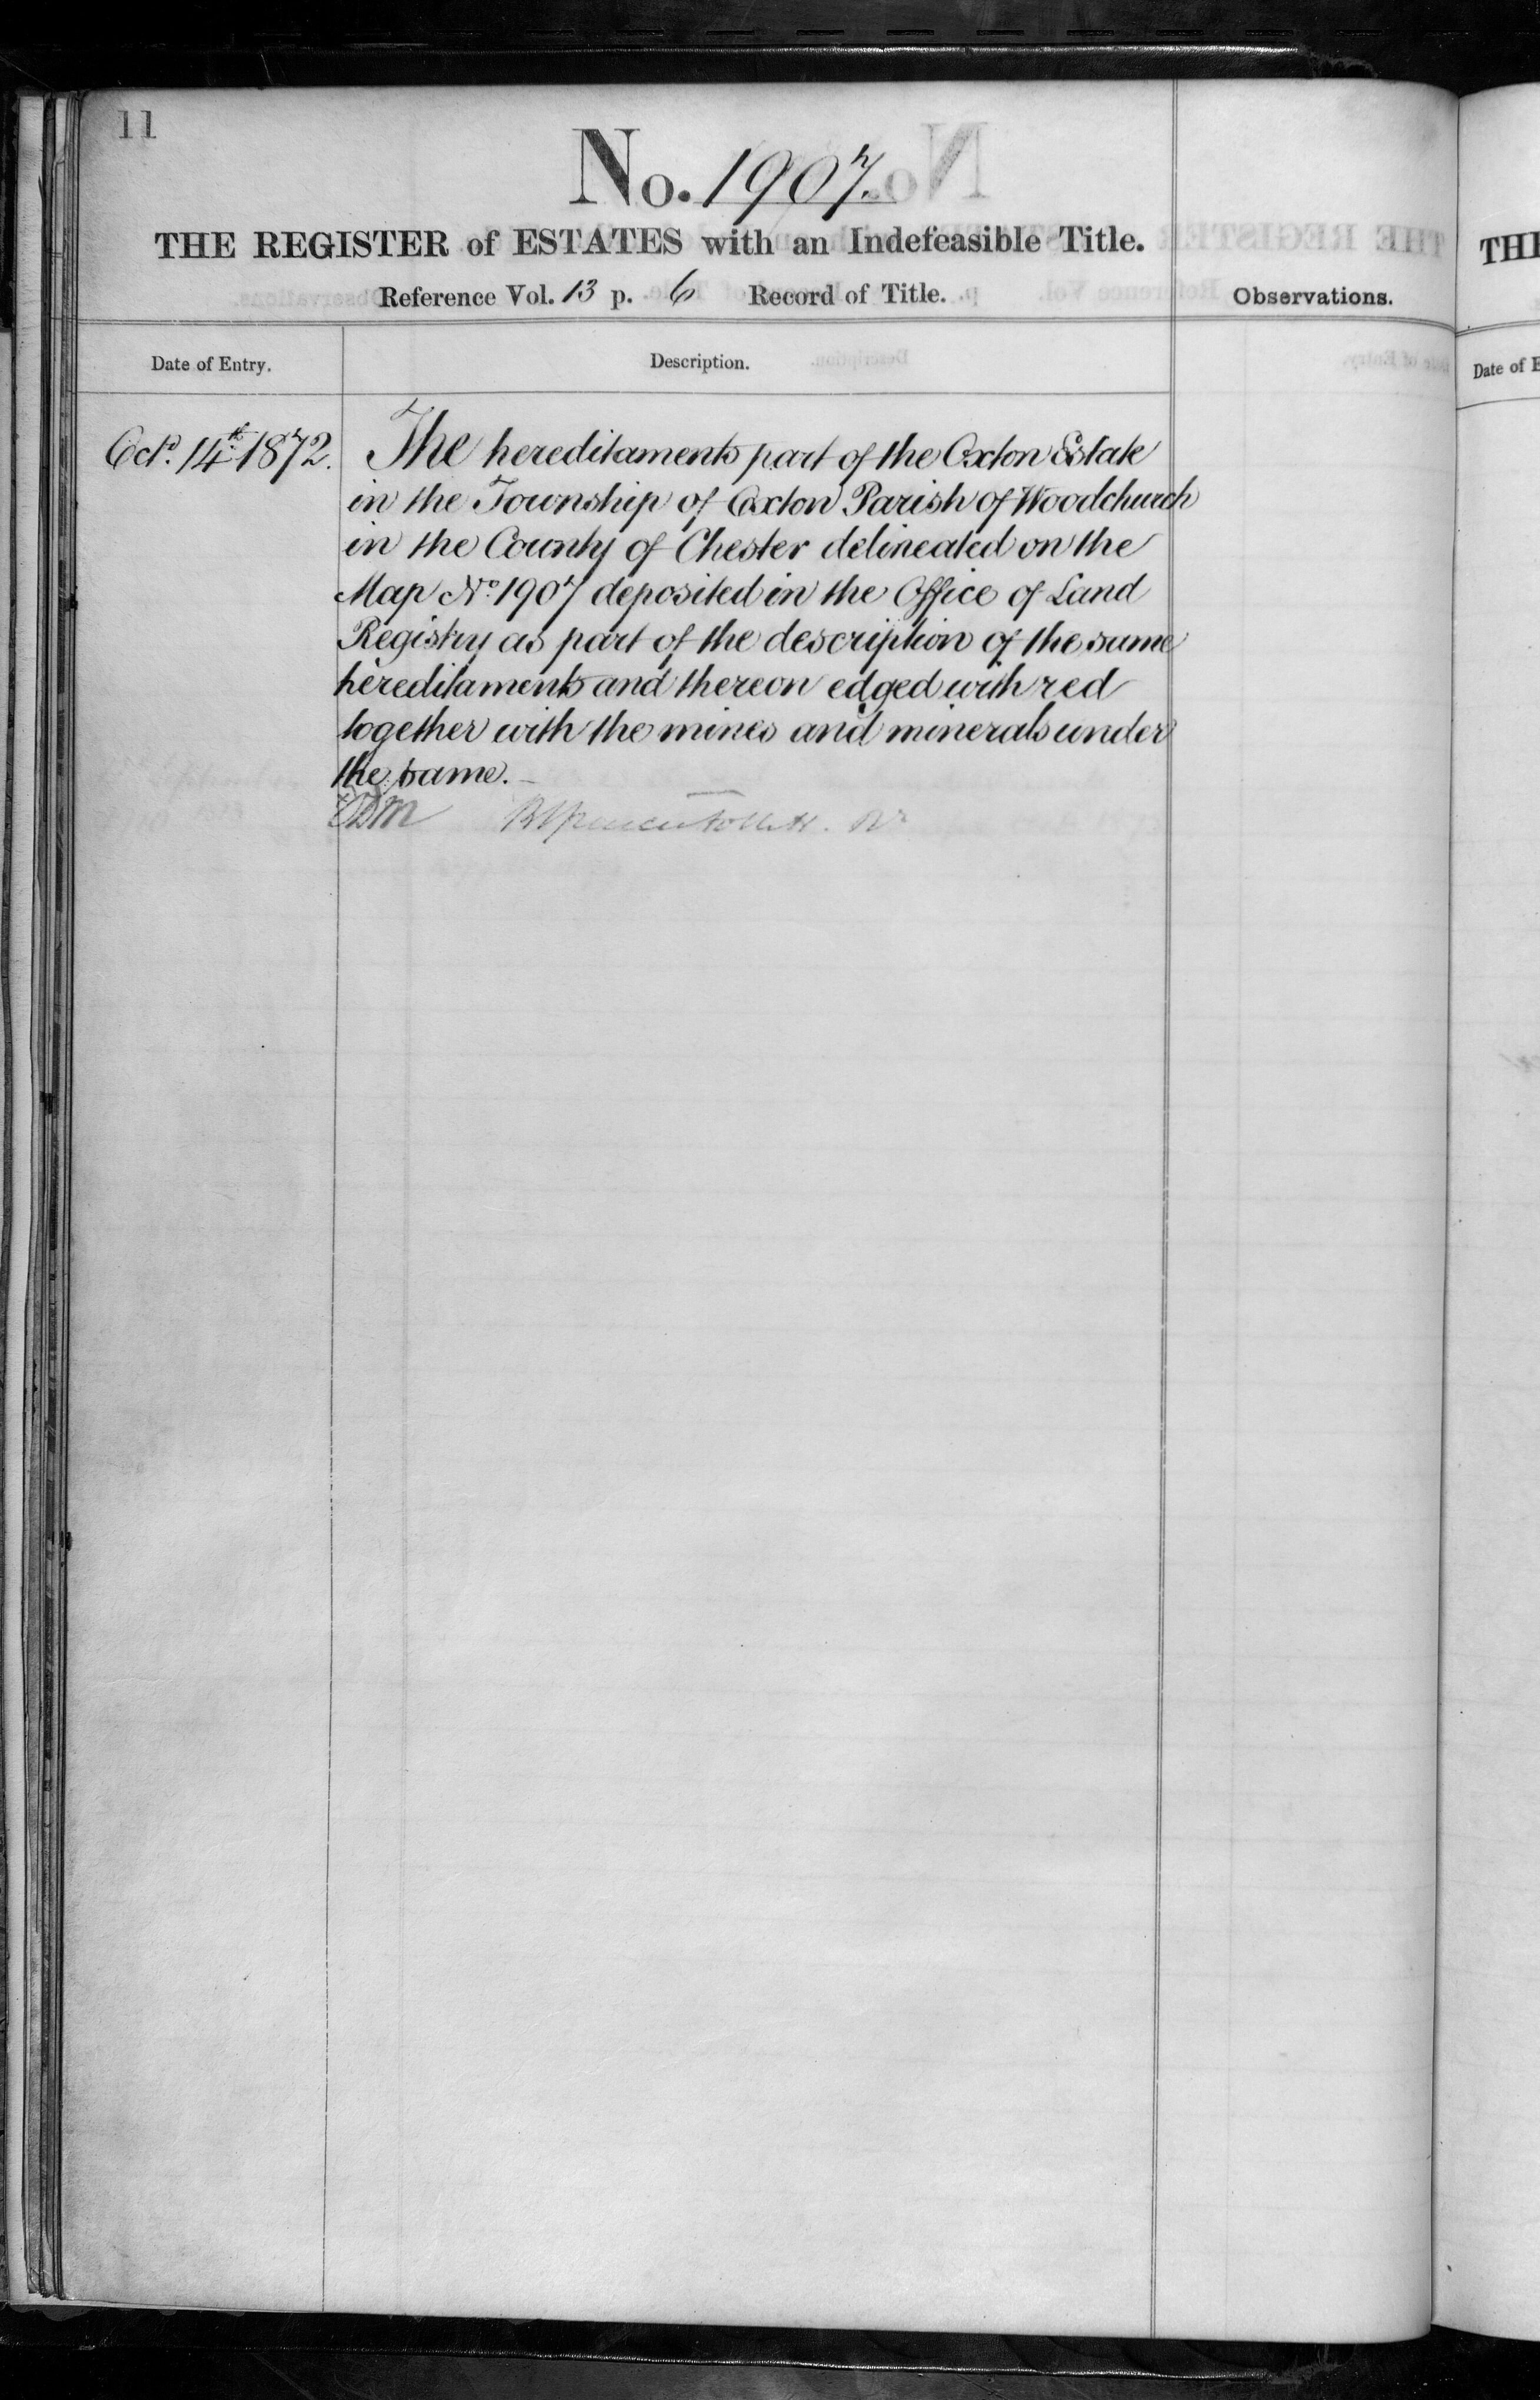 11
No. 1907.
THE REGISTER of ESTATES with an Indefeasible Title.
Reference Vol. 13 p. 6 Record of Title.
Observations.
Date of Entry.
Description.
Octr. 14th 1872.
The hereditaments part of the Oxton Estate
in the Township of Oxton Parish of Woodchurch
in the County of Chester delineated on the
Map No. 1907 deposited in the Office of Land
Registry as part of the description of the same
hereditaments and thereon edged with red
together with the mines and minerals under
the same.
THE
Date of E